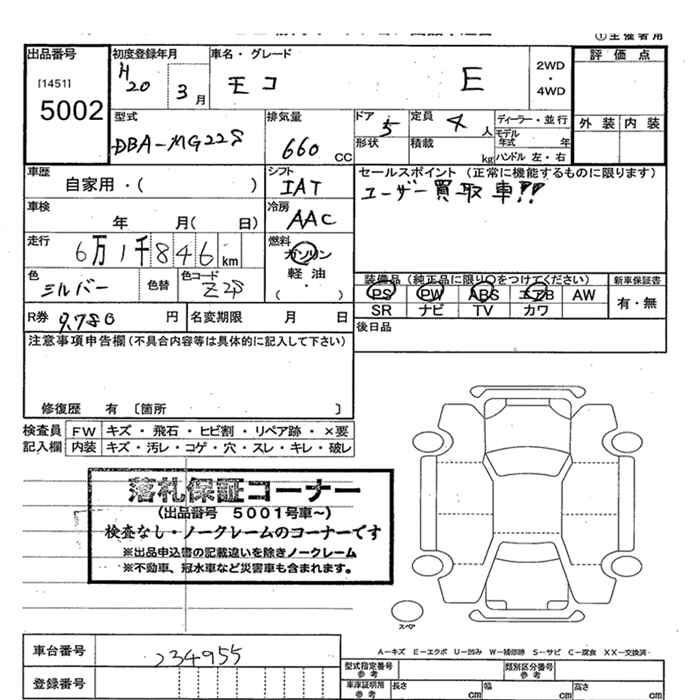 ①主催者用
出品番号 初度登録年月 車名・グレード 評価点
[1451] 5002 H20 3月 モコ E 2WD・4WD
外装 内装
型式 排気量 ドア 定員 ディーラー・並行
DBA-MG22S 660cc 5 4人 モデル年式 年
形状 積載 kg ハンドル 左・右
車歴 シフト セールスポイント(正常に機能するものに限ります)
自家用・( ) IAT ユーザー買取車!!
車検 冷房
年 月( 日) AAC
走行 燃料
6万1千846km ガソリン
軽油
・
( )
色 色替 色コード 装備品(純正品に限り○をつけてください) 新車保証書
シルバー Z2S PS PW ABS エアB AW 有・無
SR ナビ TV カワ
R券 9,780円 名変期限 月 日 後日品
注意事項申告欄(不具合内容等は具体的に記入して下さい)
修復歴 有〔箇所 〕
検査員 FW キズ・飛石・ヒビ割・リペア跡・×要
記入欄 内装 キズ・汚レ・コゲ・穴・スレ・キレ・破レ
落札保証コーナー
(出品番号 5001号車~)
検査なし・ノークレームのコーナーです
※出品申込書の記載違いを除きノークレーム
※不動車、冠水車など災害車も含まれます。
スペア
A-キズ E-エクボ U-凹み W-補修跡 S-サビ C-腐食 XX-交換済
車台番号 234955
登録番号
型式指定番号 参考 類別区分番号 参考
車庫証明用 参考 長さ cm 幅 cm 高さ cm